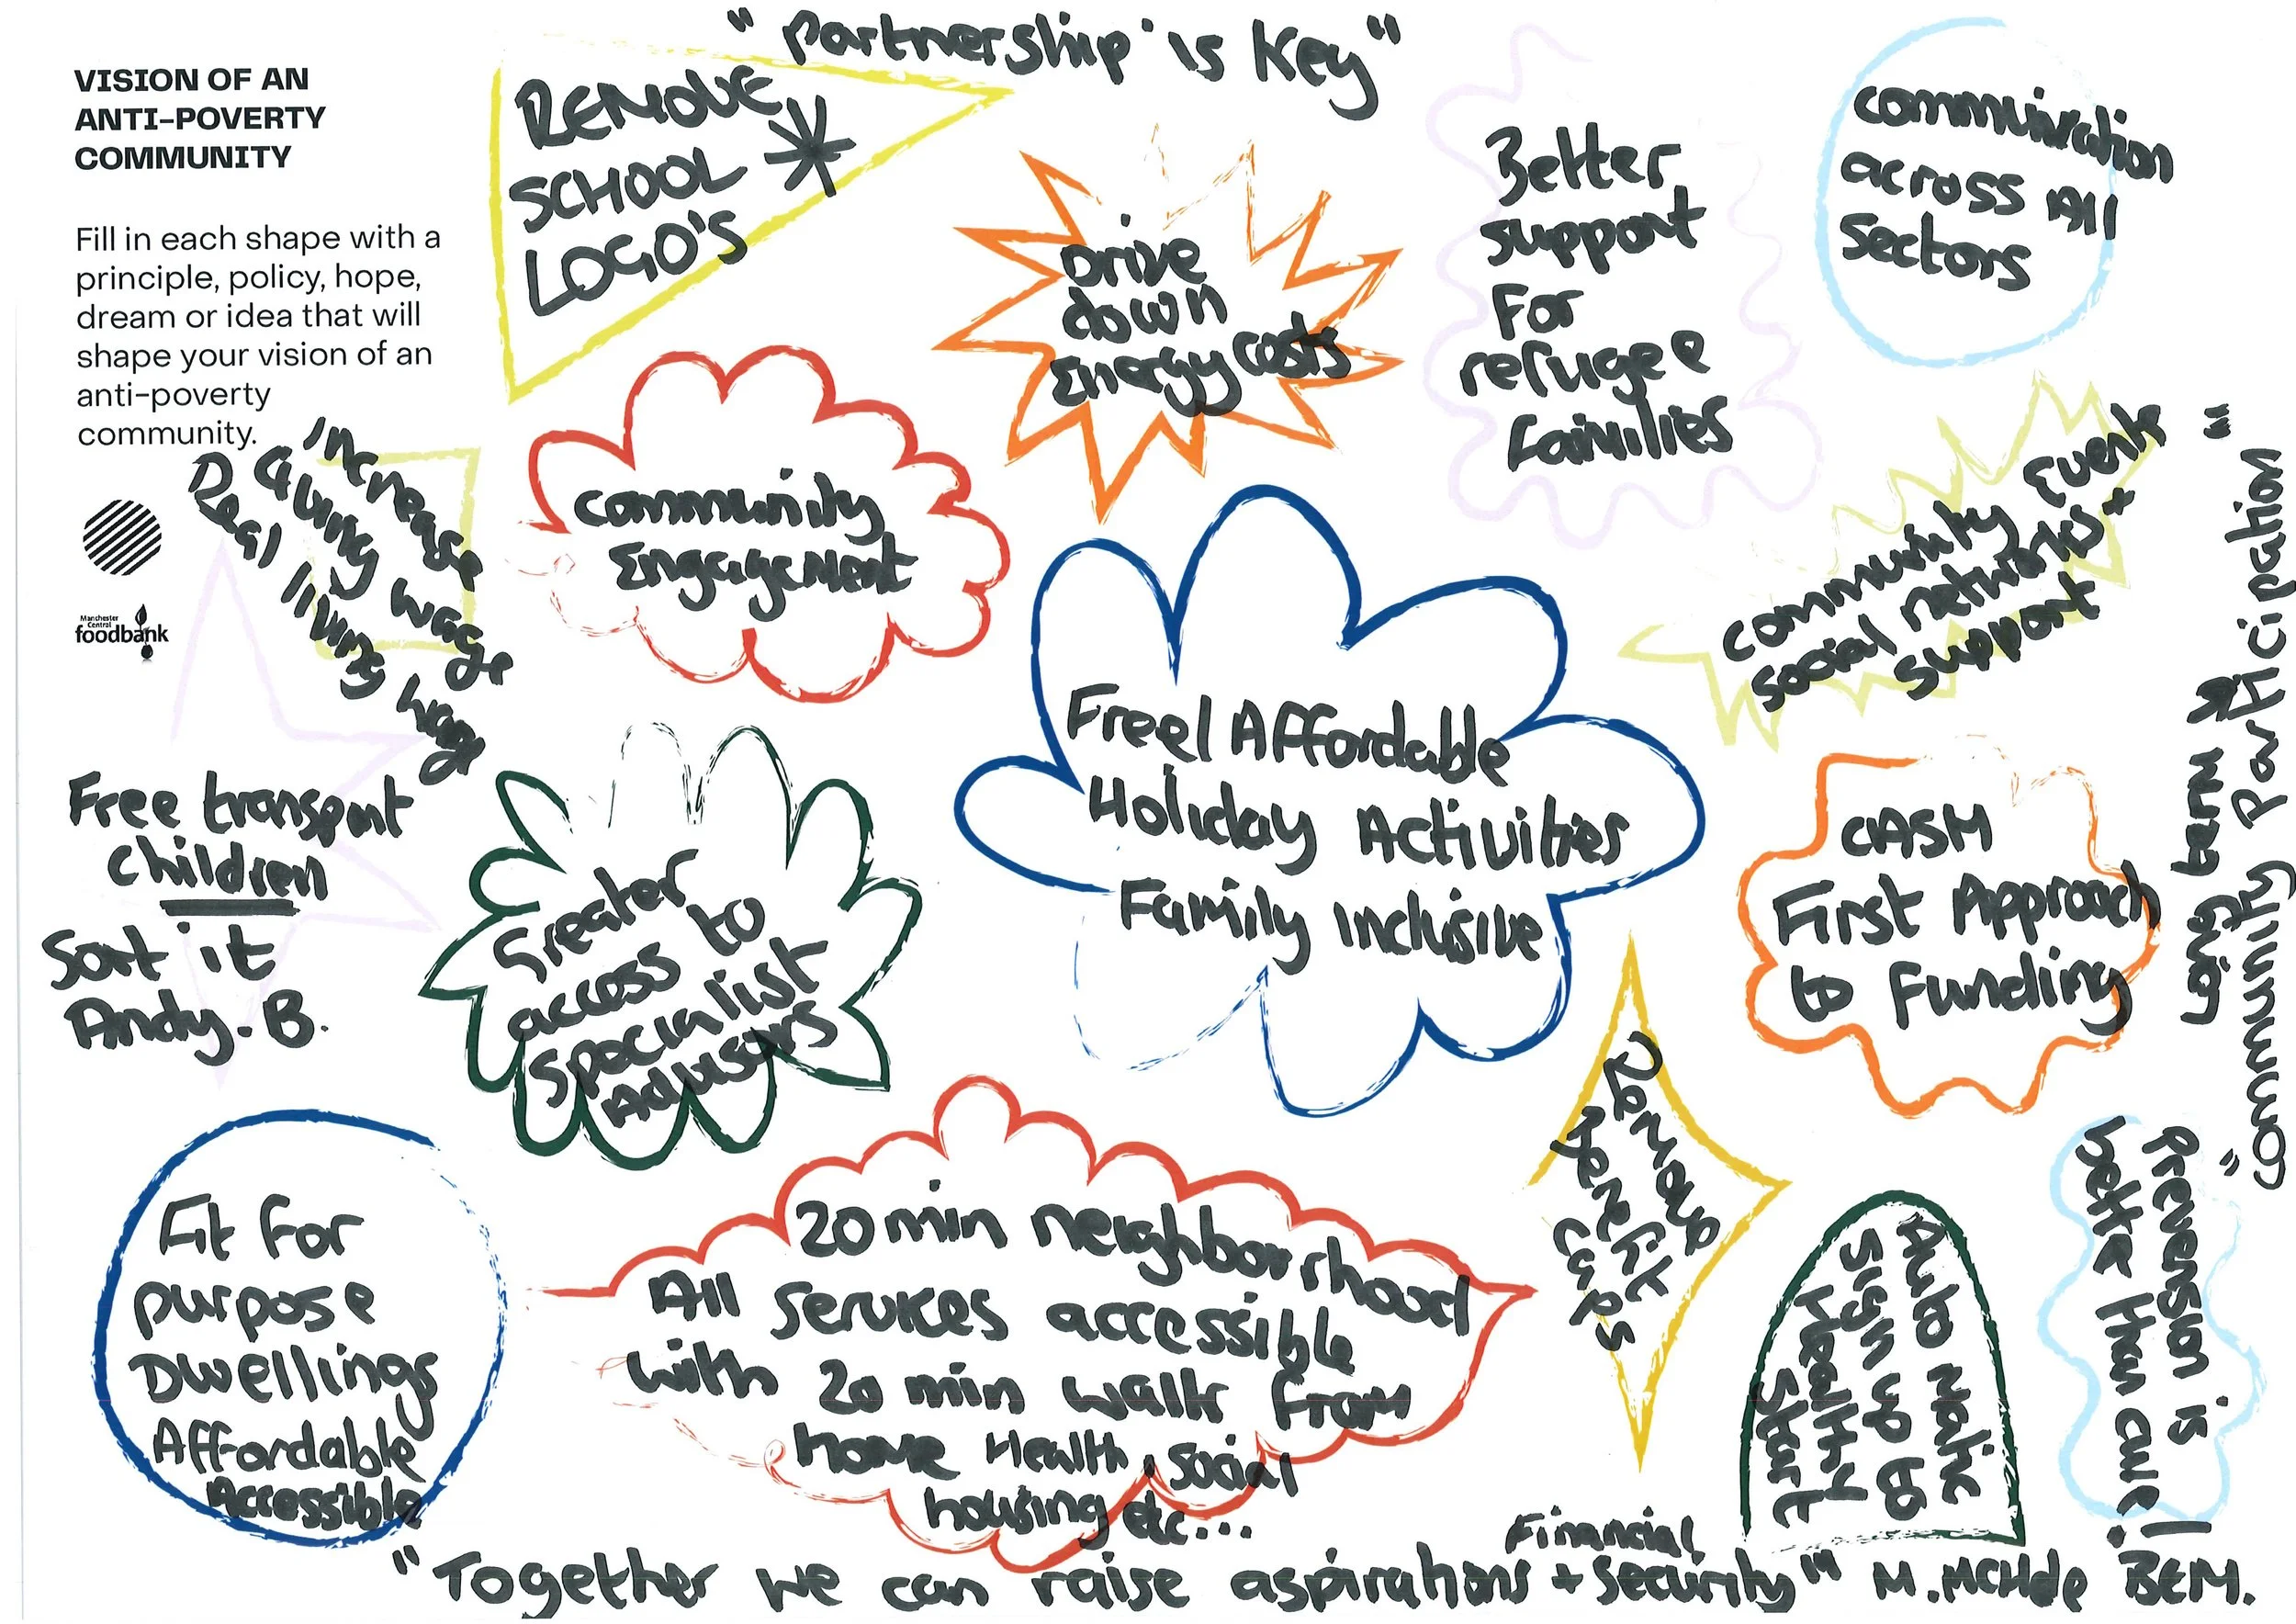 VISION OF AN
ANTI-POVERTY
COMMUNITY
Fill in each shape with a
principle, policy, hope,
dream or idea that will
shape your vision of an
anti-poverty
community.
Manchester
Central
foodbank
"Partnership is Key"
REMOVE
SCHOOL
LOGO'S
Drive
down
Energy costs
Better
support
For
refugee
families
communication
across All
Sectors
Increase
living wage
Real living wage
community
Engagement
community Events
social networks +
support
Free/Affordable
Holiday Activities
Family Inclusive
Free transport
children
Sort it
Andy. B.
Greater
access to
specialist
Advisors
CASH
First Approach
to Funding
"Long term
community Participation"
Fit for
purpose
Dwellings
Affordable
Accessible
20 min neighborrhood
All services accessible
with 20 min walk from
home Health, social
housing etc...
Remove
Benefit
Caps
Automatic
sign up to
Healthy
Start
Prevension is
bette than cure!
"Together we can raise aspirations + Financial security" M.
BEM.